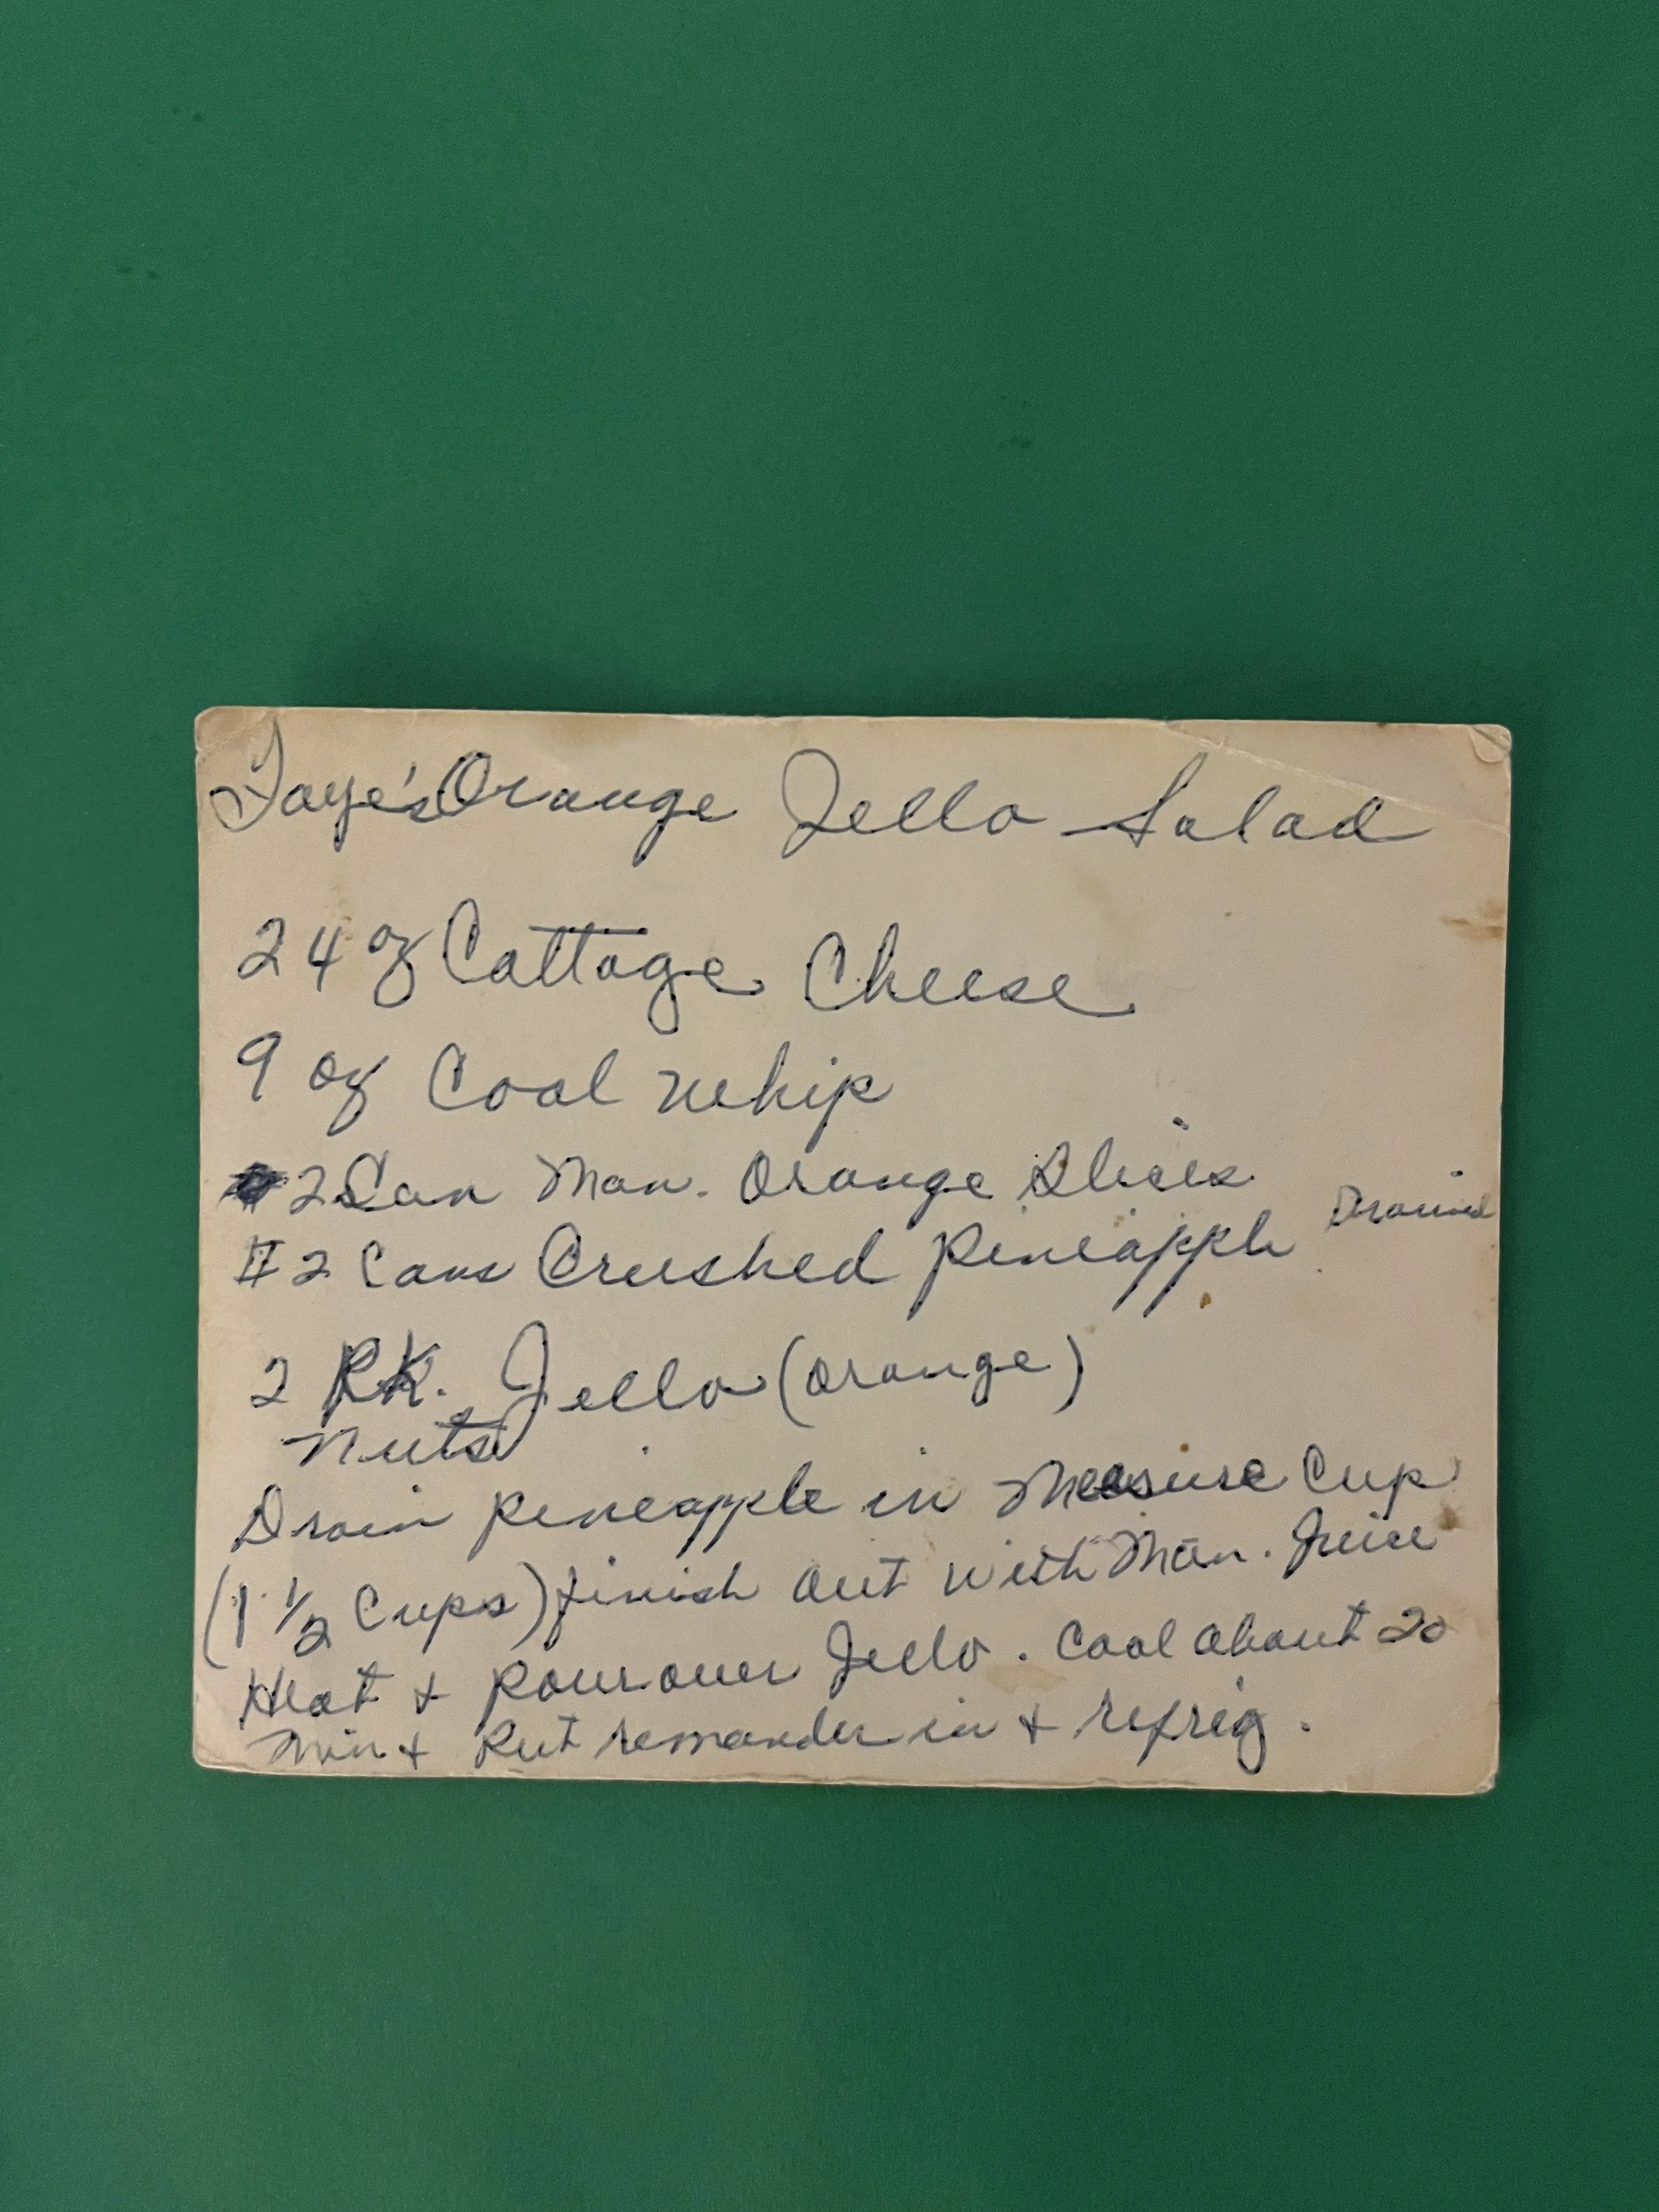 Faye's Orange Jello Salad
24 oz Cottage Cheese
9 oz Cool whip
2 Can Man. Orange Slices
#2 Cans Crushed Pineapple Drained
2 PK. Jello (orange)
Nuts
Drain pineapple in Measure Cup
(1 1/2 Cups) finish out with Man. Juice
Heat & Pour over Jello. Cool about 20
Min & Put remander in & refrig.